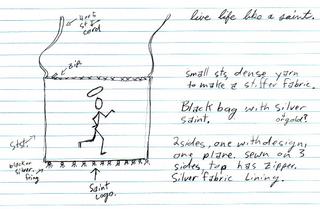 live life like a saint.
cord
zip
small sts, dense yarn
to make a stiffer fabric.
Black bag with silver
saint. or gold?
2 sides, one with design,
one plane. sewn on 3
sides, top has zipper.
Silver fabric lining.
st st.
black or
silver
fring
Saint
Logo.